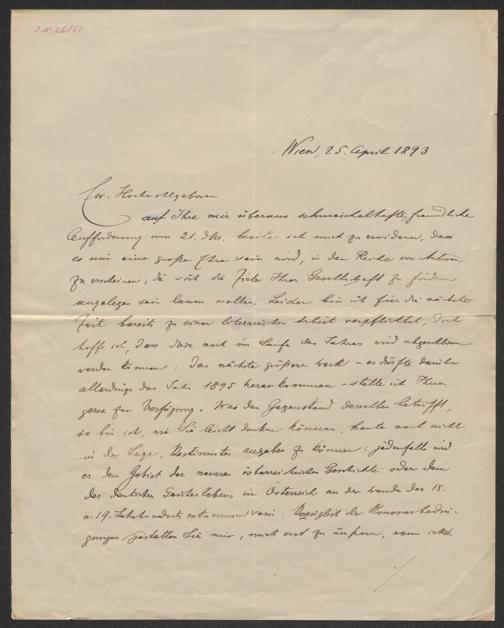 Wien, 25. April 1893
Ew. Hochwohlgeboren
auf Ihre mir überaus schmeichelhafte freundliche
Aufforderung vom 21. dM. beeile ich mich zu erwidern, dass
es mir eine große Ehre sein wird, in der Reihe von Autoren
zu erscheinen, die sich die Ziele Ihrer Gesellschaft zu fördern
angelegen sein lassen wollen. Leider bin ich für die nächste
Zeit bereits zu einer literarischen Arbeit verpflichtet, doch
hoffe ich, dass diese noch im Laufe des Jahres wird abgeschlossen
werden können: das nächste größere Werk – es dürfte darüber
allerdings das Jahr 1895 herankommen – stelle ich Ihnen
gerne zur Verfügung. Was den Gegenstand desselben betrifft,
so bin ich, wie Sie leicht denken können, heute noch nicht
in der Lage, Bestimmtes angeben zu können: jedenfalls wird
er dem Gebiet der neueren österreichischen Geschichte oder dem
des deutschen Geisteslebens in Österreich an der Wende des 18.
u. 19. Jahrhunderts entnommen sein. Bezüglich der Honorarbedin-
gungen gestatten Sie mir, mich erst zu äußern, wenn ich